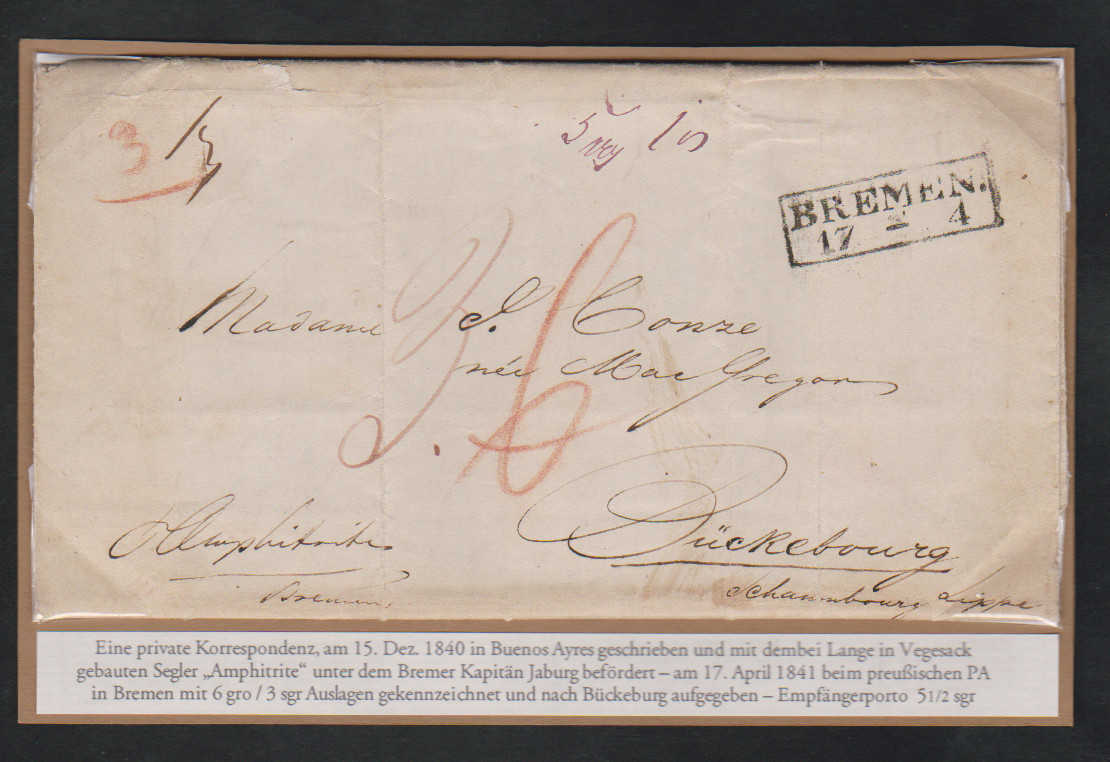 3
BREMEN.
17 4
3. 6
Madame J. Conze
née Mac Gregor
Bückebourg
Schaumbourg Lippe
Amphitrite
Bremen
Eine private Korrespondenz, am 15. Dez. 1840 in Buenos Ayres geschrieben und mit dembei Lange in Vegesack
gebauten Segler „Amphitrite“ unter dem Bremer Kapitän Jaburg befördert – am 17. April 1841 beim preußischen PA
in Bremen mit 6 gro / 3 sgr Auslagen gekennzeichnet und nach Bückeburg aufgegeben – Empfängerporto 51/2 sgr